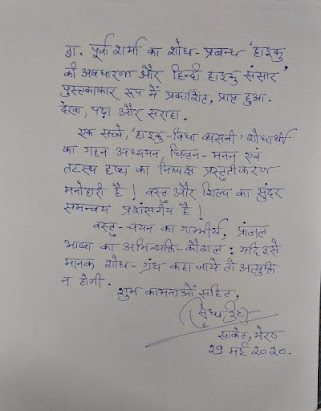 डा. पूर्वा शर्मा का शोध-प्रबन्ध 'हाइकु
की अवधारणा और हिन्दी हाइकु संसार'
पुस्तकाकार रूप में प्रकाशित, प्राप्त हुआ.
देखा, पढ़ा और सराहा.
एक सच्चे, 'हाइकु-विधा व्यसनी' शोधार्थी
का गहन अध्ययन, चिन्तन-मनन एवं
तटस्थ दृष्टा का निष्पक्ष प्रस्तुतीकरण
मनोहारी है! वस्तु और शिल्प का सुंदर
समन्वय प्रशंसनीय है!
वस्तु-चयन का गाम्भीर्य, प्रांजल
भाषा का अभिव्यक्ति-कौशल: यदि इसे
मानक शोध-ग्रंथ कहा जाये तो अत्युक्ति
न होगी.
शुभ कामनाओं सहित.
साकेत, मेरठ
29 मई 2020.